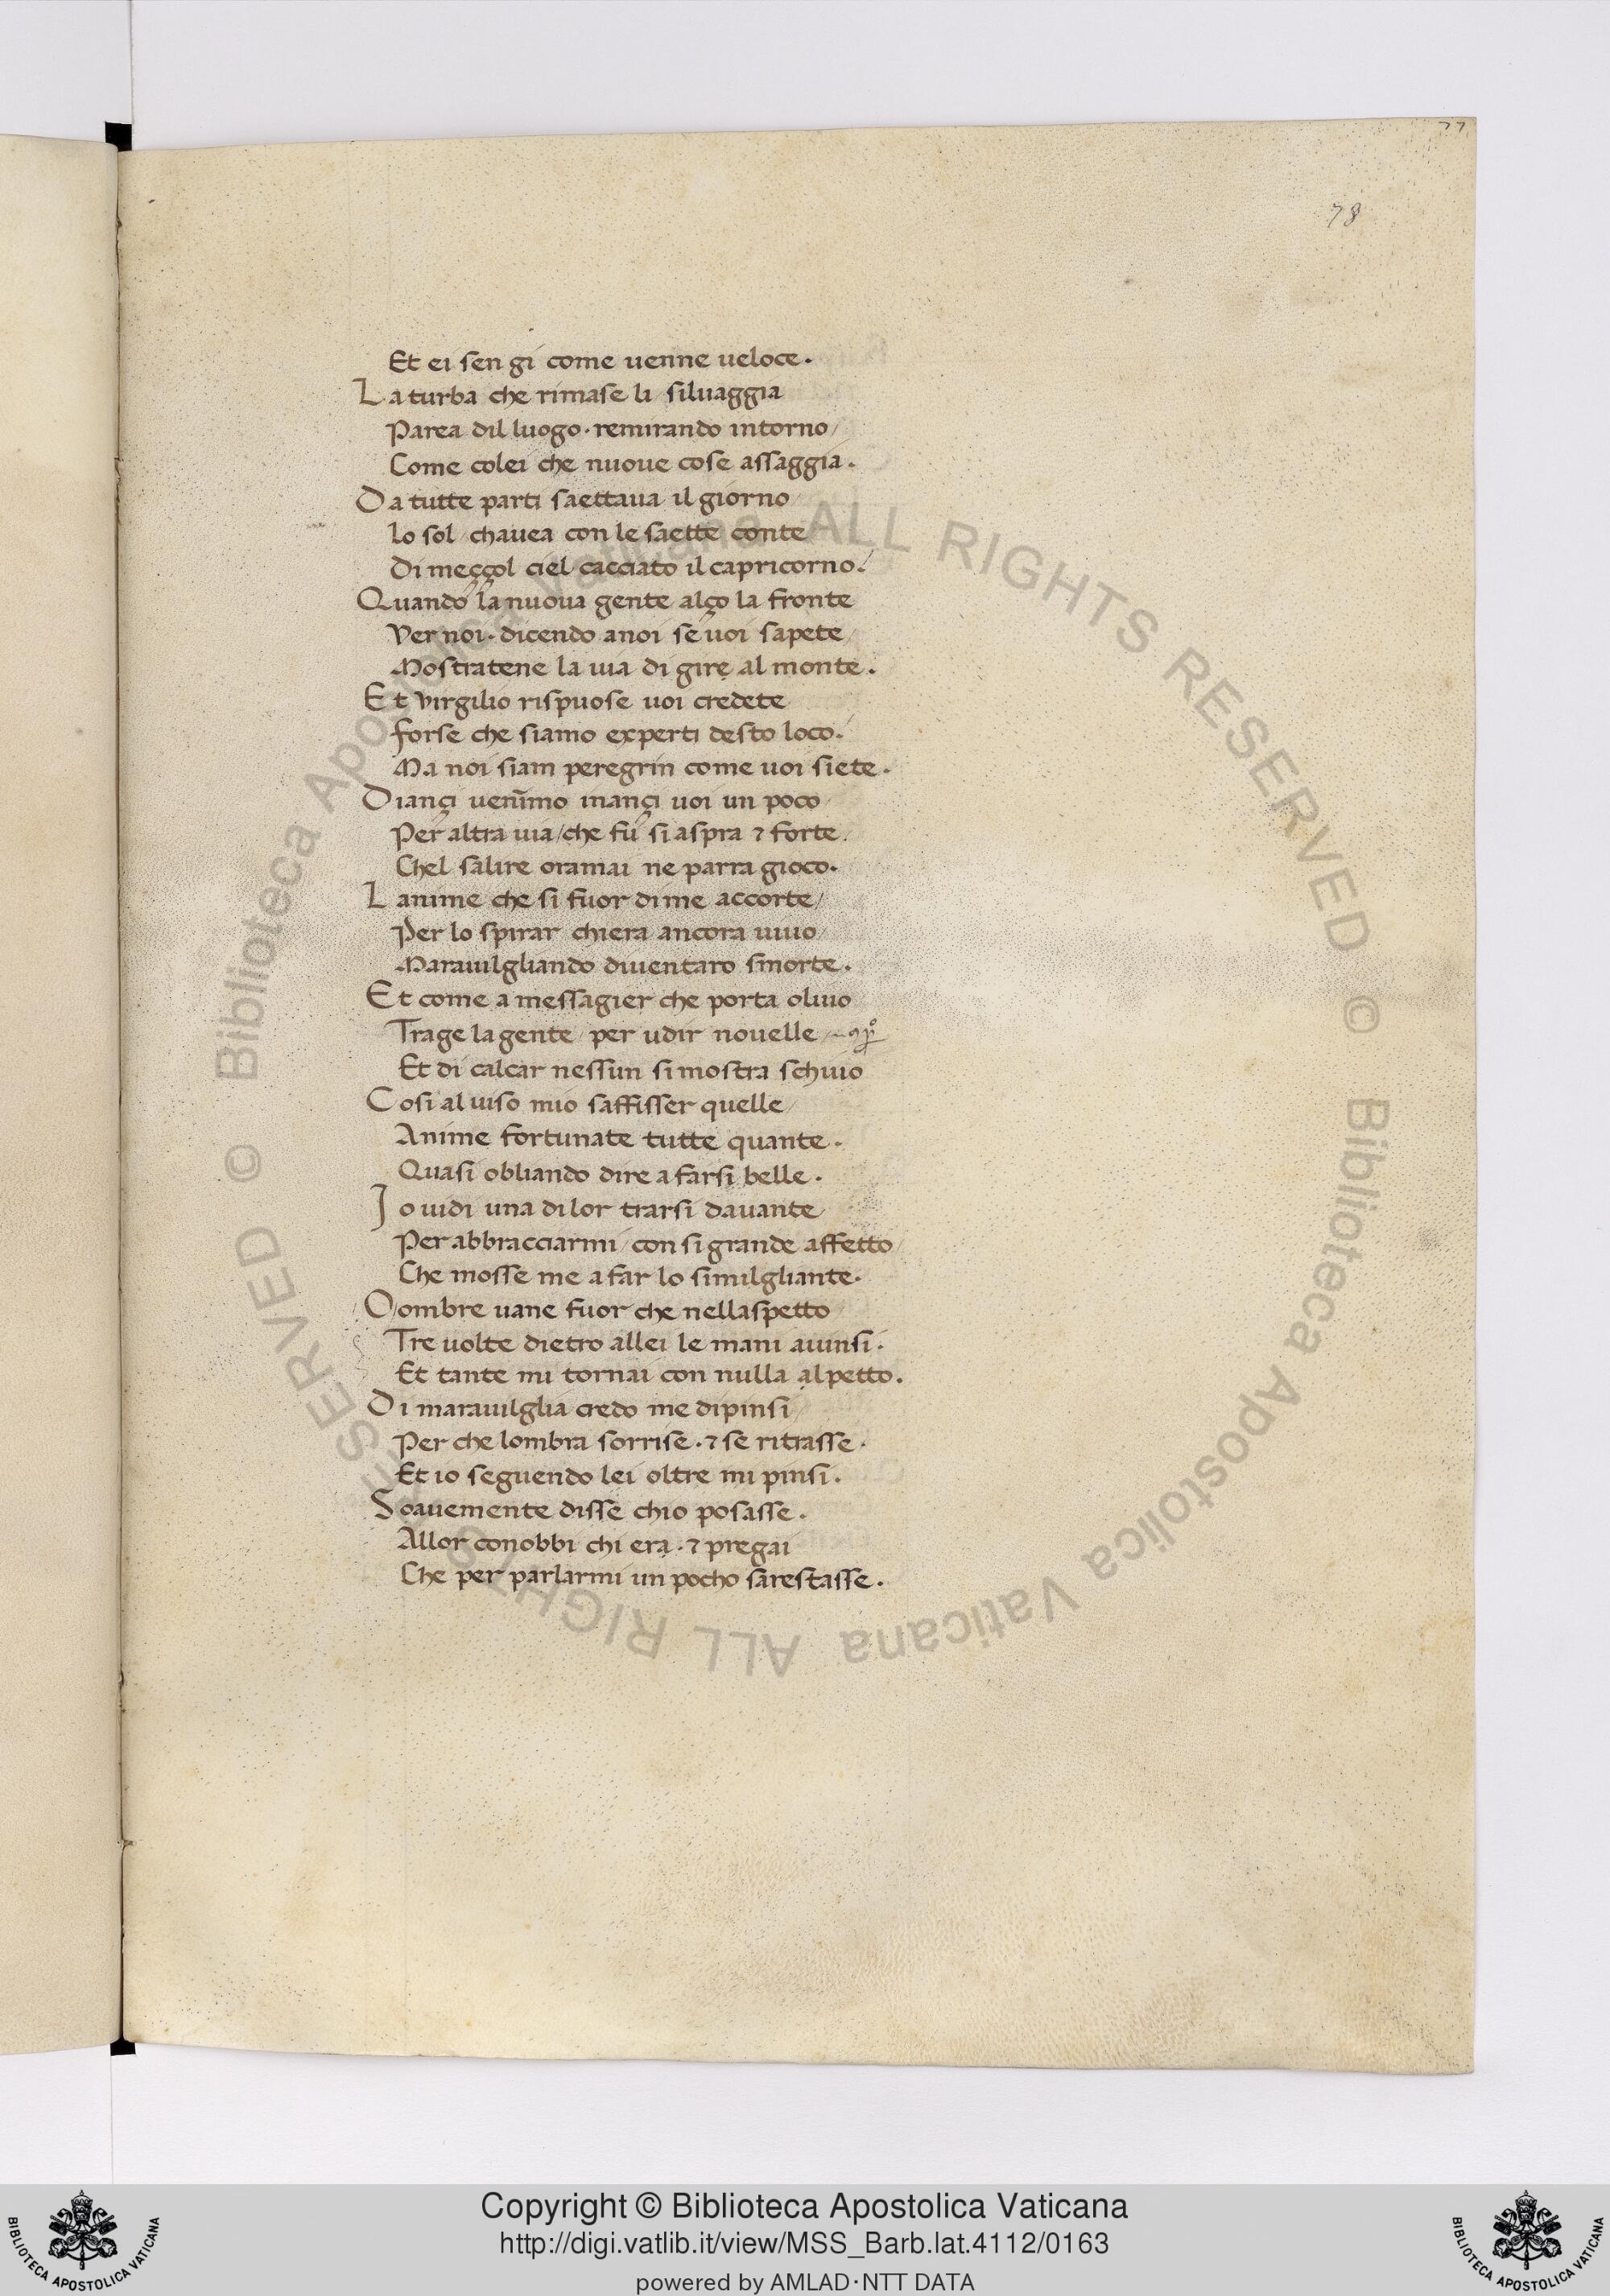 77
78
Et ei sen gi come uenne ueloce.
La turba che rimase li siluaggia
Parea dil luogo. remirando intorno/
Come colei che nuoue cose assaggia.
Da tutte parti saettaua il giorno/
Lo sol/ chauea con le saette conte
Di meççol ciel cacciato il capricorno.
Quando la nuoua gente alço la fronte
Ver noi. dicendo anoi se uoi sapete/
Mostratene la uia di gire al monte.
Et virgilio rispuose uoi credete
forse che siamo experti desto loco.
Ma noi siam peregrin come uoi siete.
Diançi uenimo inançi uoi un poco/
Per altra uia/ che fu si aspra ⁊ forte.
Chel salire oramai ne parra gioco.
Lanime che si fuor di me accorte/
Per lo spirar chiera ancora uiuo/
Marauilgliando diuentaro smorte.
Et come a messagier che porta oliuo
Trage la gente/ per udir nouelle/
Et di calcar nessun si mostra schiuo
Cosi al uiso mio saffisser quelle/
Anime fortunate tutte quante.
Quasi obliando dire a farsi belle.
Jo uidi una di lor trarsi dauante
Per abbracciarmi/ con si grande affetto/
Che mosse me a far lo similgliante.
O/ombre uane fuor che nellaspetto/
Tre uolte dietro allei le mani auinsi.
Et tante mi tornai con nulla al petto.
Di marauilglia credo me dipinsi/
Per che lombra sorrise. ⁊ se ritrasse.
Et io seguendo lei oltre mi pinsi.
Soauemente disse chio posasse.
Allor conobbi chi era. ⁊ pregai
Che per parlarmi un pocho sarestasse.
© Biblioteca Apostolica Vaticana ALL RIGHTS RESERVED © Biblioteca Apostolica Vaticana ALL RIGHTS RESERVED
Copyright © Biblioteca Apostolica Vaticana
http://digi.vatlib.it/view/MSS_Barb.lat.4112/0163
powered by AMLAD·NTT DATA
BIBLIOTECA APOSTOLICA VATICANA
BIBLIOTECA APOSTOLICA VATICANA